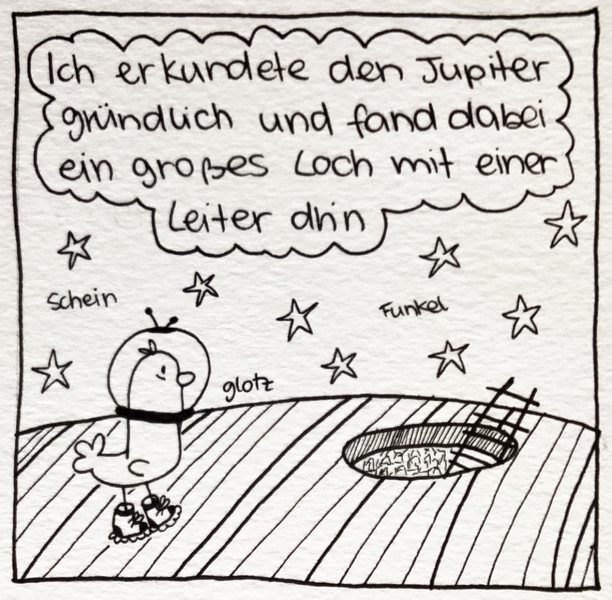 Ich erkundete den Jupiter
gründlich und fand dabei
ein großes Loch mit einer
Leiter drin
Schein
Funkel
glotz